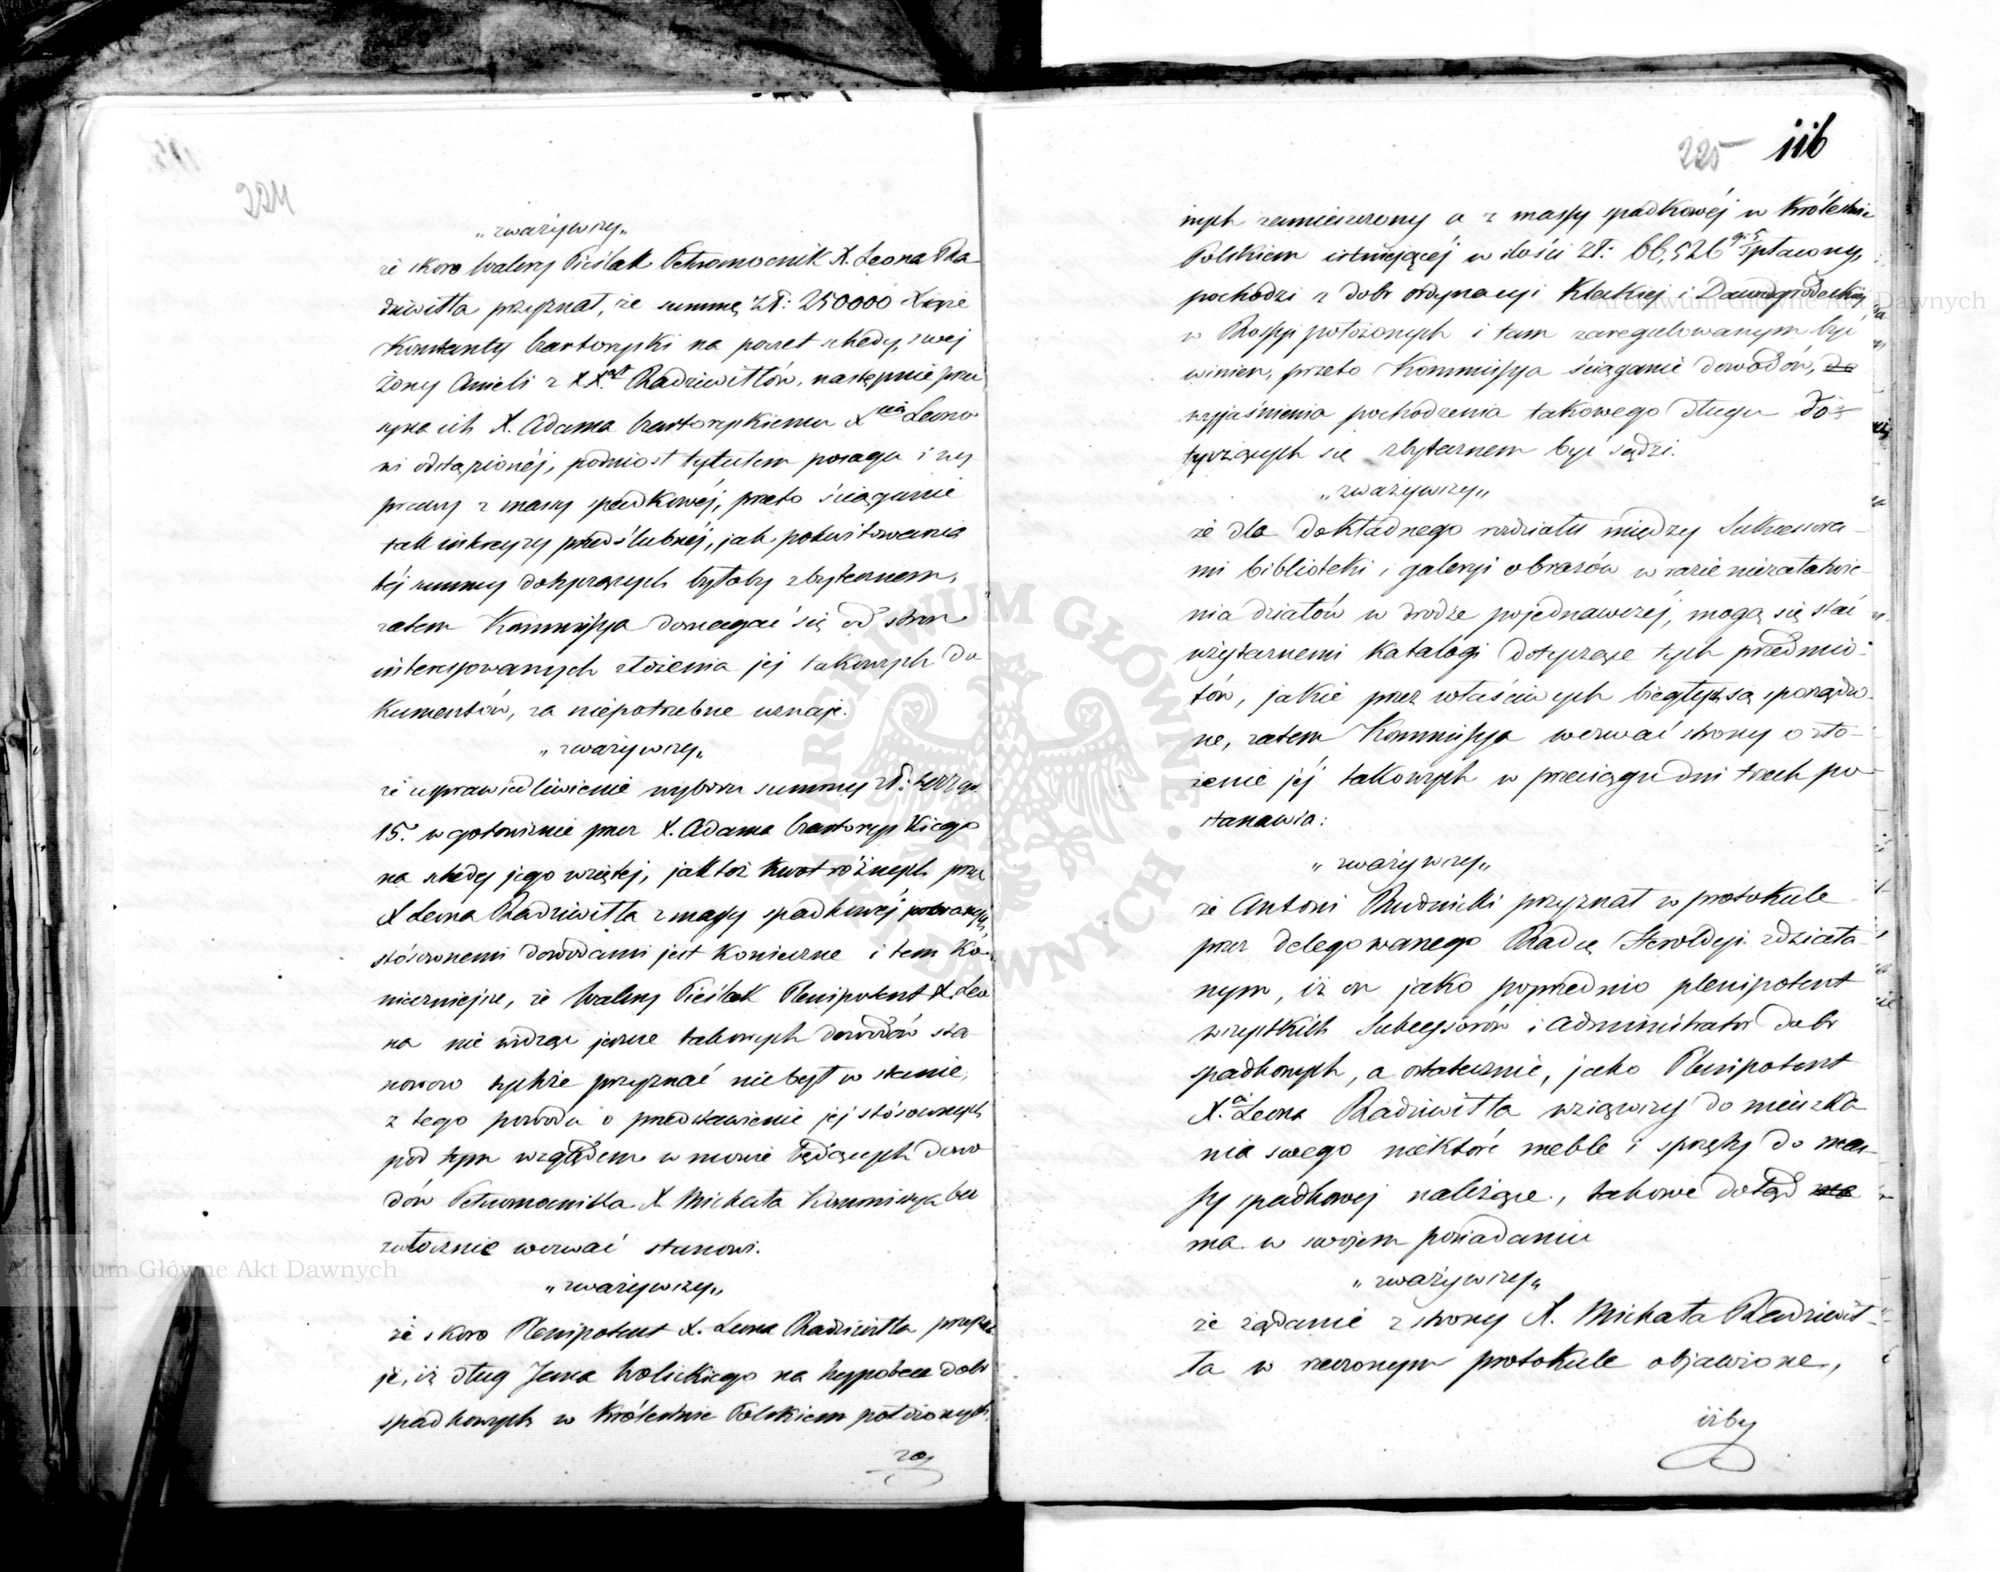 224
„zważywszy„
że skoro Walery Cieślak Pełnomocnik X. Leona Ra
dziwiłła przyznał, że summę Zł: 250000 Xiąże
Konstanty Czartoryski na poczet schedy, swej
żony Anieli z XX Radziwiłłów, następnie przez
syna ich X. Adama Czartoryskiemu X Leono
wi odstąpionéj, podniósł tytułem posagu i wy
prawy z massy spadkowéj, przeto ściąganie
tak intercyzy przedślubnéj, jak pokwitowania
téj summy dotyczących byłoby zbytecznem,
zatem Kommissya domagać się od stron
interessowanych złożenia jej takowych do
kumentów, za niepotrzebne uznaje.
„zważywszy„
że usprawiedliwienie wyboru summy Zł:
15. w gotowiznie przez X. Adama Czartoryskiego
na schedę jego wziętej, jak też kwot różnych przez
X Leona Radziwiłła z massy spadkowéj pobranych,
stósownemi dowodami jest konieczne i tem ko
nieczniejsze, że Walery Cieślak Plenipotent X. Leo
na nie widząc jeszcze takowych dowodów sta
nowczo tychże przyznać niebył w stanie,
z tego powodu o przedstawienie jej stósownych
pod tym względem w mowie będących dowo
dów Pełnomocnika X Michała Kommissya bez
zwłocznie wezwać stanowi.
„zważywszy„
że skoro Plenipotent X. Leona Radziwiłła przyzna
je, iż dług Jana Wolickiego na hyppotece dóbr
spadkowych w Królestwie Polskiem położonych,
za
225 116
nych zamieszczony a z massy spadkowéj w Królestwie
Polskiem istniejącéj w ilości Zł: 66,526 gr. 5 spłacony,
pochodzi z dóbr ordynacyi Kleckiej i Dawidgródeckiej
w Rossyi położonych i tam zaregulowanym być
winien, przeto Kommissya ściąganie dowodów, do
wyjaśnienia pochodzenia takowego długu do
tyczących się zbytecznem być sądzi.
„zważywszy„
że dla dokładnego rozdziału między Sukcessora
mi biblioteki i galeryi obrazów w razie niezałatwie
nia działów w drodze pojednawczéj, mogą się stać
użytecznemi katalogi dotyczące tych przedmio
tów, jakie przez właściwych biegłych są sporządzo
ne, zatem Kommissya wezwać strony o zło
żenie jéj takowych w przeciągu dni trzech po
stanawia:
„zważywszy„
że Antoni Rudnicki przyznał w protokule
przez delegowanego Radcę Heroldyi zdziała
nym, iż on jako poprzednio plenipotent
wszystkich Sukcessorów i administrator dóbr
spadkowych, a ostatecznie, jako Plenipotent
X. Leona Radziwiłła wziąwszy do mieszka
nia swego niektóre meble i sprzęty do mas
sy spadkowej należące, takowe dotąd ma
ma w swojem posiadaniu
„zważywszy„
że żądanie z strony X. Michała Radziwił
ła w rzeczonym protokule objawione,
iżby